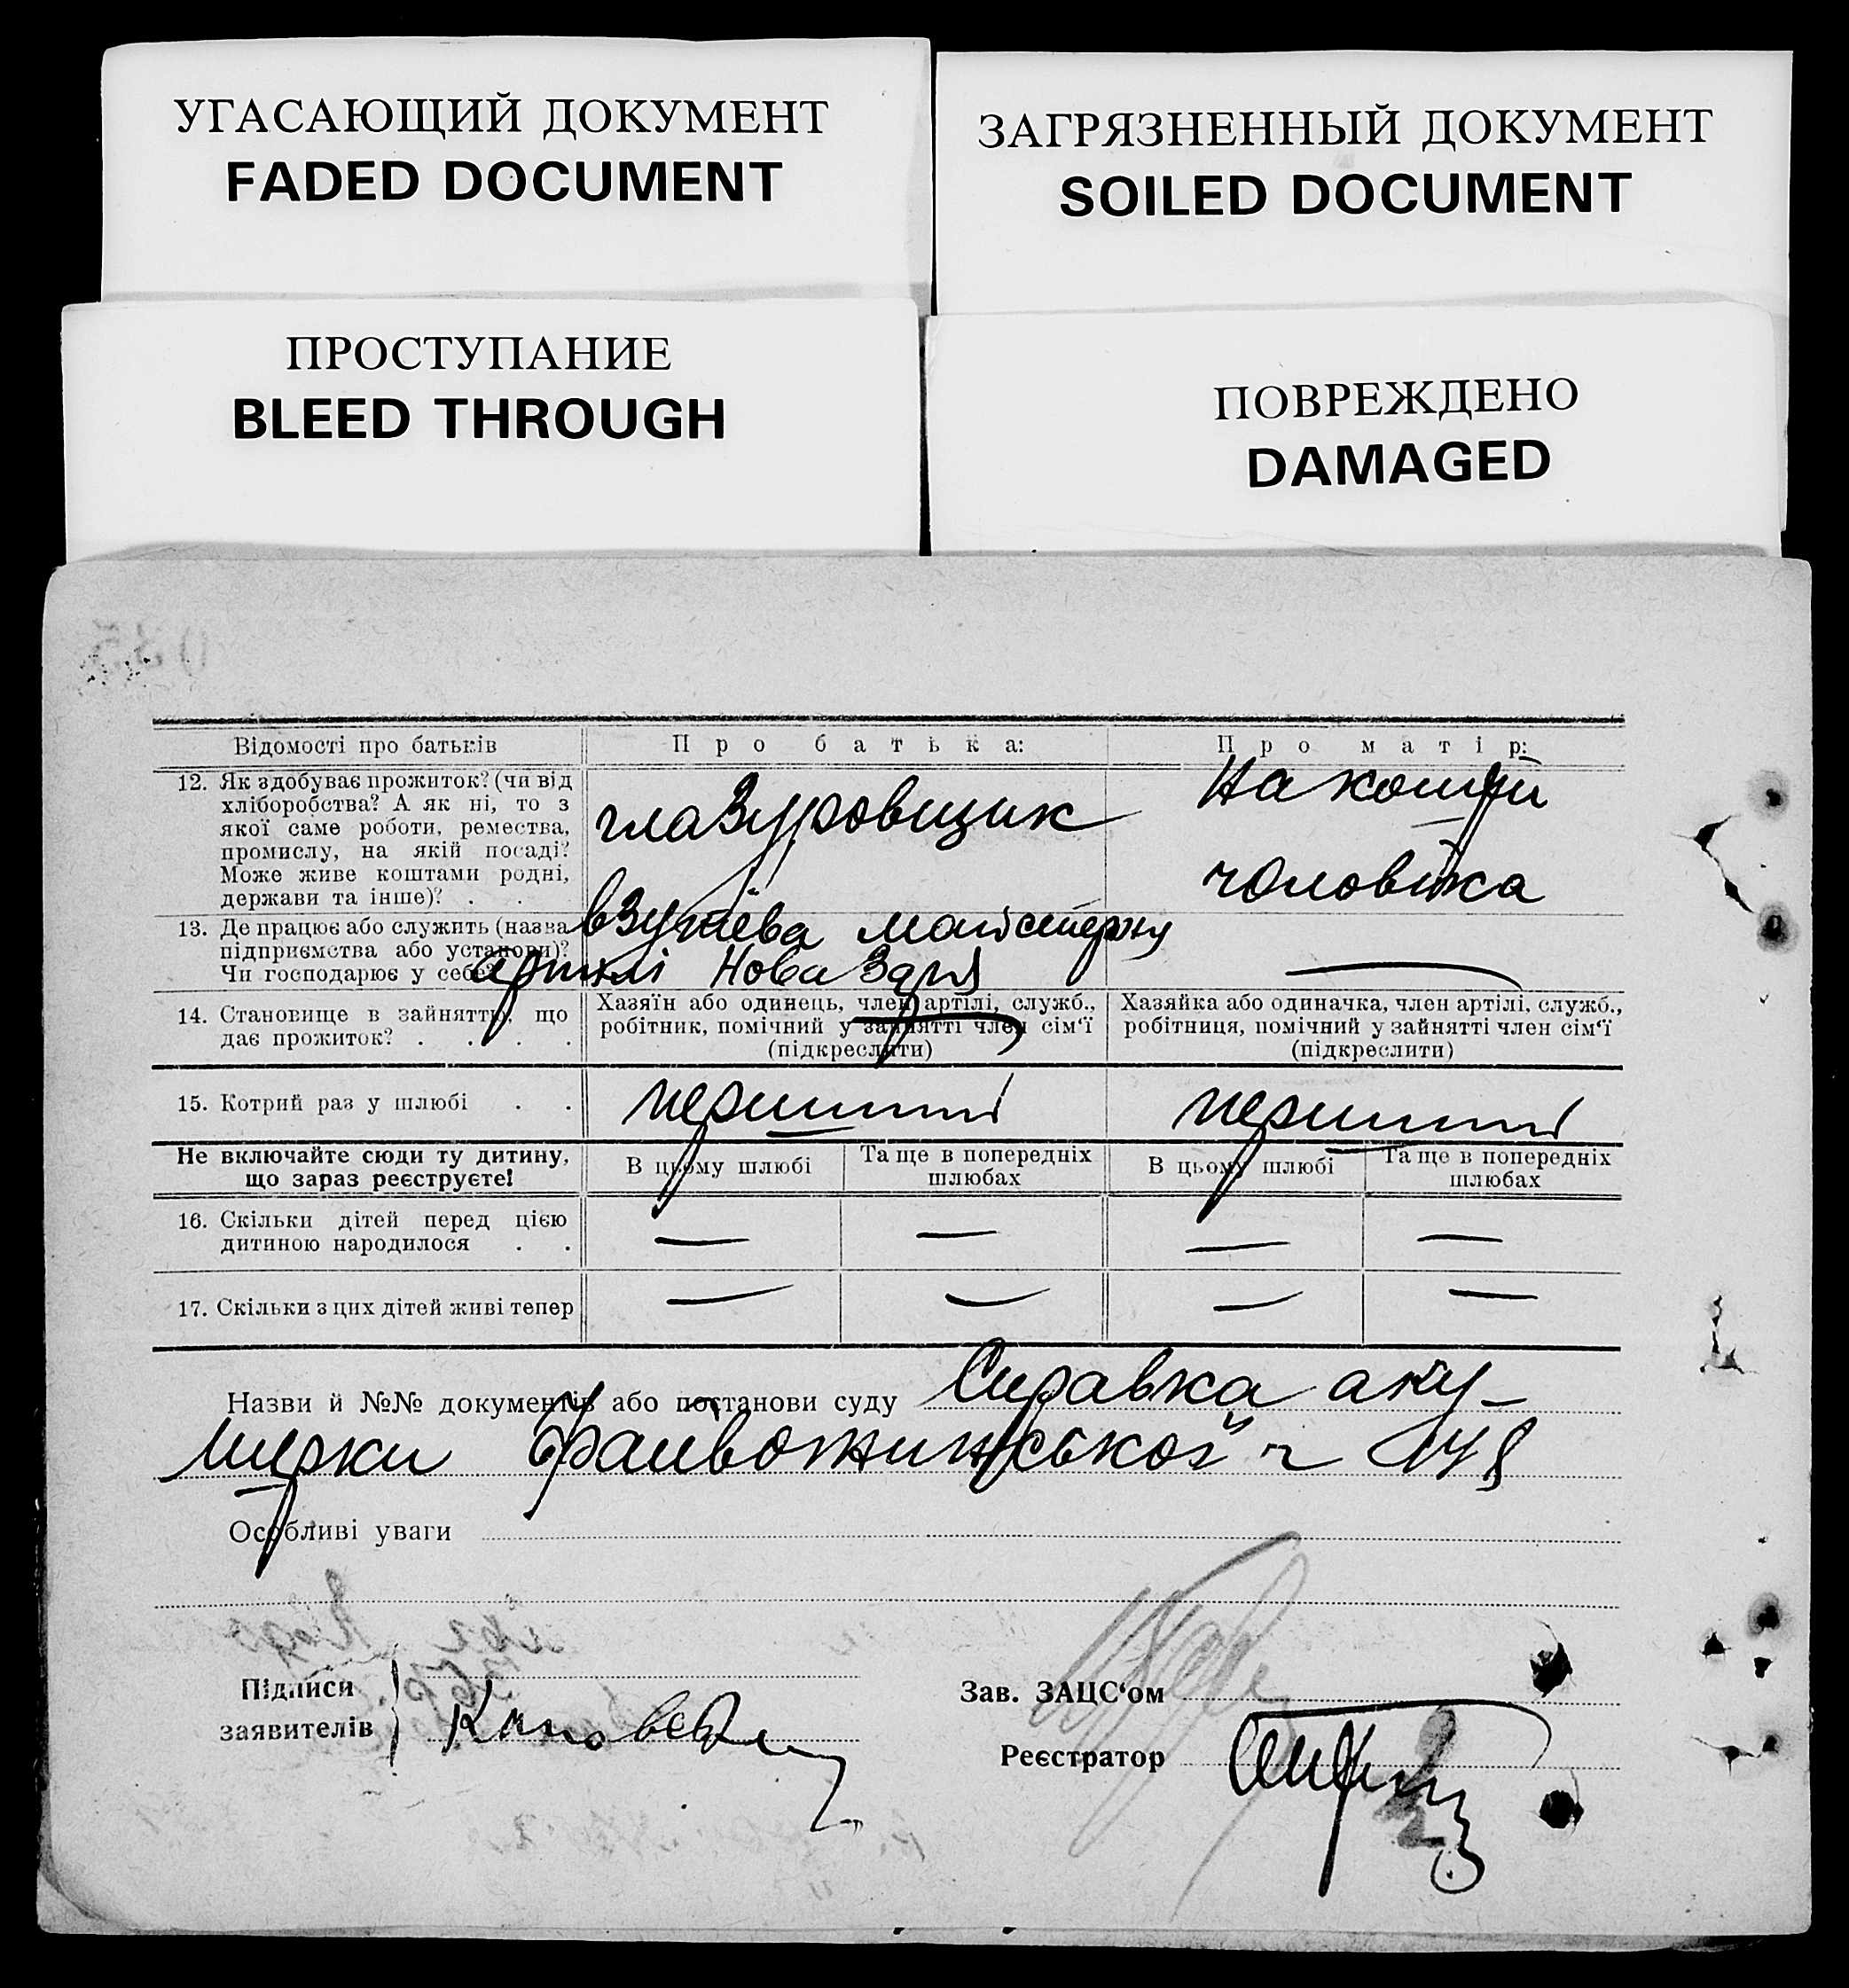 УГАСАЮЩИЙ ДОКУМЕНТ
FADED DOCUMENT
ЗАГРЯЗНЕННЫЙ ДОКУМЕНТ
SOILED DOCUMENT
ПРОСТУПАНИЕ
BLEED THROUGH
ПОВРЕЖДЕНО
DAMAGED
Відомості про батьків
Про батька:
Про матір:
12. Як здобуває прожиток? (чи від
хліборобства? А як ні, то з
якої саме роботи, ремества,
промислу, на якій посаді?
Може живе коштами родні,
держави та інше)? . .
глазуровщик
На кошти
чоловіка
13. Де працює або служить (назва
підприємства або установи)?
Чи господарює у себе?
взутєва майстерня
артілі Нова Зоря
14. Становище в зайнятті, що
дає прожиток? . . . .
Хазяїн або одинець, член артілі, служб.,
робітник, помічний у зайнятті член сім‘ї
(підкреслити)
Хазяйка або одиначка, член артілі, служб.,
робітниця, помічний у зайнятті член сім‘ї
(підкреслити)
15. Котрий раз у шлюбі . .
перший
перший
Не включайте сюди ту дитину,
що зараз реєструєте!
В цьому шлюбі
Та ще в попередніх
шлюбах
В цьому шлюбі
Та ще в попередніх
шлюбах
16. Скільки дітей перед цією
дитиною народилося . .
— — — —
17. Скільки з цих дітей живі тепер
— — — —
Назви й №№ документів або постанови суду Справка аку-
шерки
Особливі уваги
Підписи
заявителів
Зав. ЗАЦС‘ом
Реєстратор